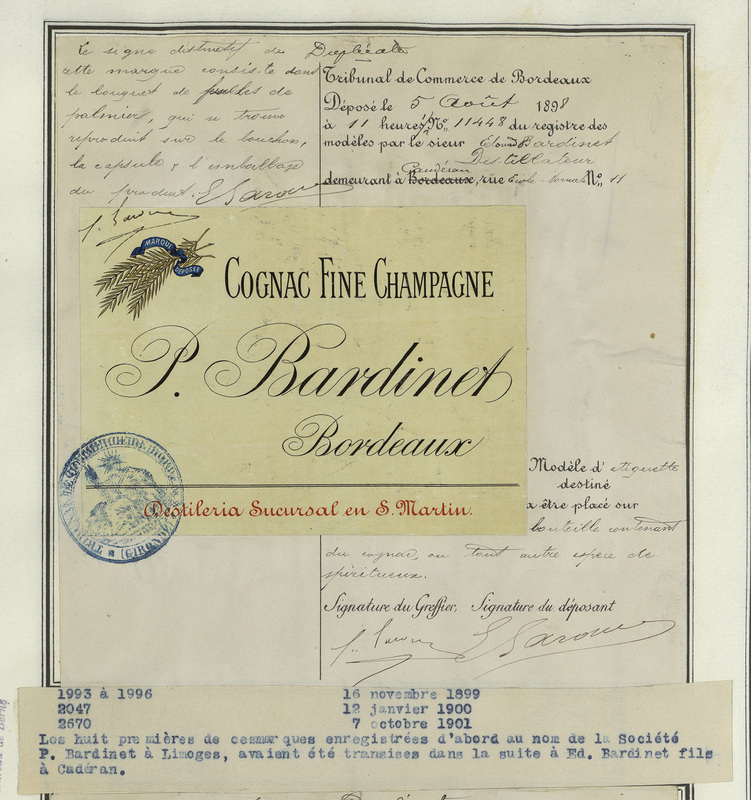 Le signe distinctif de Duplicata
cette marque consiste dans
le bouquet de feuilles de
palmier, qui se trouve
reproduit sur le bouchon,
la capsule & l'emballage
du produit.
Tribunal de Commerce de Bordeaux
Déposé le 5 Août 1898
à 11 heures, No. 11448 du registre des
modèles par le sieur Edouard Bardinet
Distillateur
Caudéran
demeurant à Bordeaux, rue No. 11
MARQUE
DÉPOSÉE
COGNAC FINE CHAMPAGNE
P. Bardinet
Bordeaux
Destileria Sucursal en S. Martin.
(GIRONDE)
Modèle d'étiquette
destiné
à être placé sur
bouteille contenant
du cognac, ou tout autre espèce de
spiritueux.
Signature du Greffier, Signature du déposant
1993 à 1996 16 novembre 1899
2047 12 janvier 1900
2670 7 octobre 1901
Les huit premières de cesmarques enregistrées d'abord au nom de la Société
P. Bardinet à Limoges, avaient été transises dans la suite à Ed. Bardinet fils
à Cadéran.